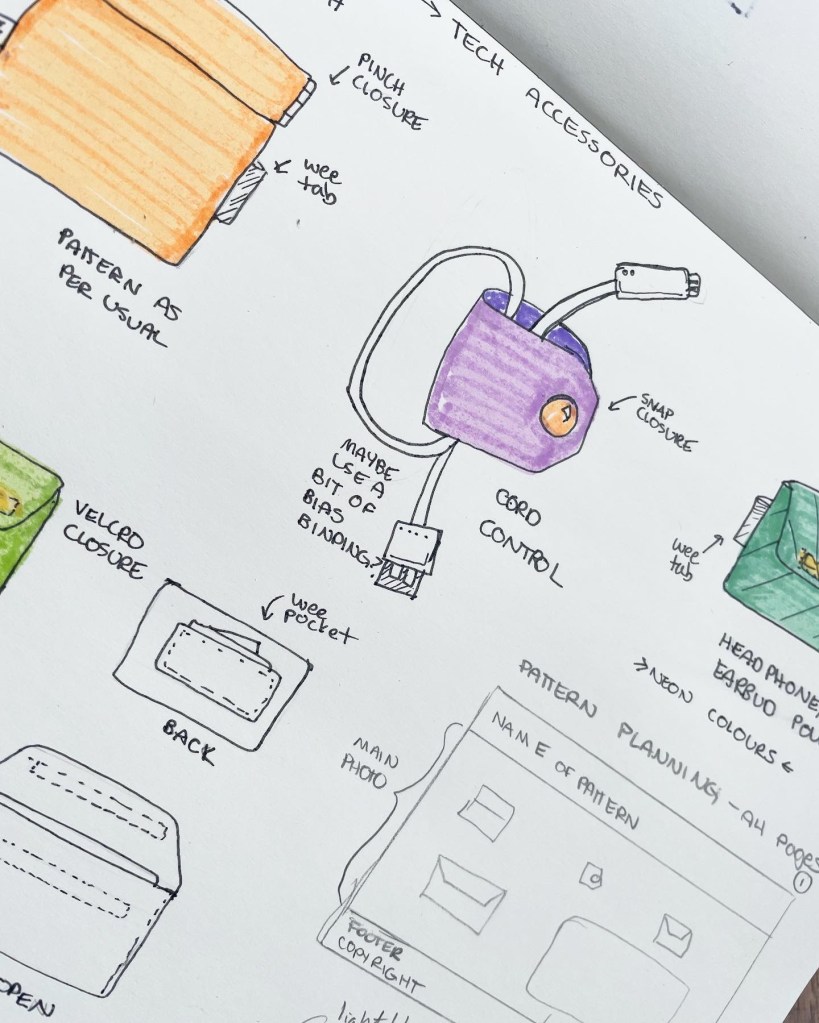 → TECH ACCESSORIES
PINCH
CLOSURE
wee
tab
PATTERN AS
PER USUAL
SNAP
CLOSURE
MAYBE
USE A
BIT OF
BIAS
BINDING?
CORD
CONTROL
VELCRO
CLOSURE
wee
tab
wee
pocket
BACK
HEADPHONE/
EARBUD POU
→ NEON COLOURS ←
PATTERN PLANNING - A4 pages
①
MAIN
PHOTO
NAME OF PATTERN
FOOTER
COPYRIGHT
OPEN